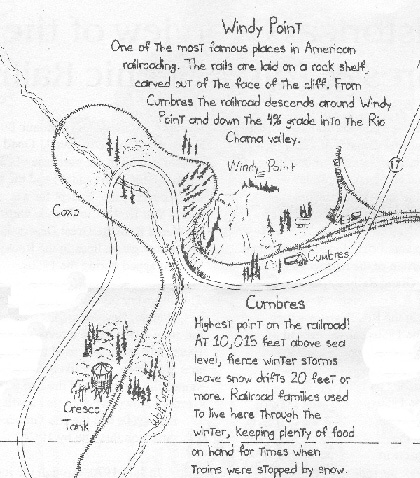 Windy Point
One of the most famous places in American
railroading. The rails are laid on a rock shelf
carved out of the face of the cliff. From
Cumbres the railroad descends around Windy
Point and down the 4% grade into the Rio
Chama valley.
Windy Point
17
Coxo
Cumbres
Cumbres
Highest point on the railroad!
At 10,015 feet above sea
level, fierce winter storms
leave snow drifts 20 feet or
more. Railroad families used
to live here through the
winter, keeping plenty of food
on hand for times when
trains were stopped by snow.
Cresco
Tank
Creek